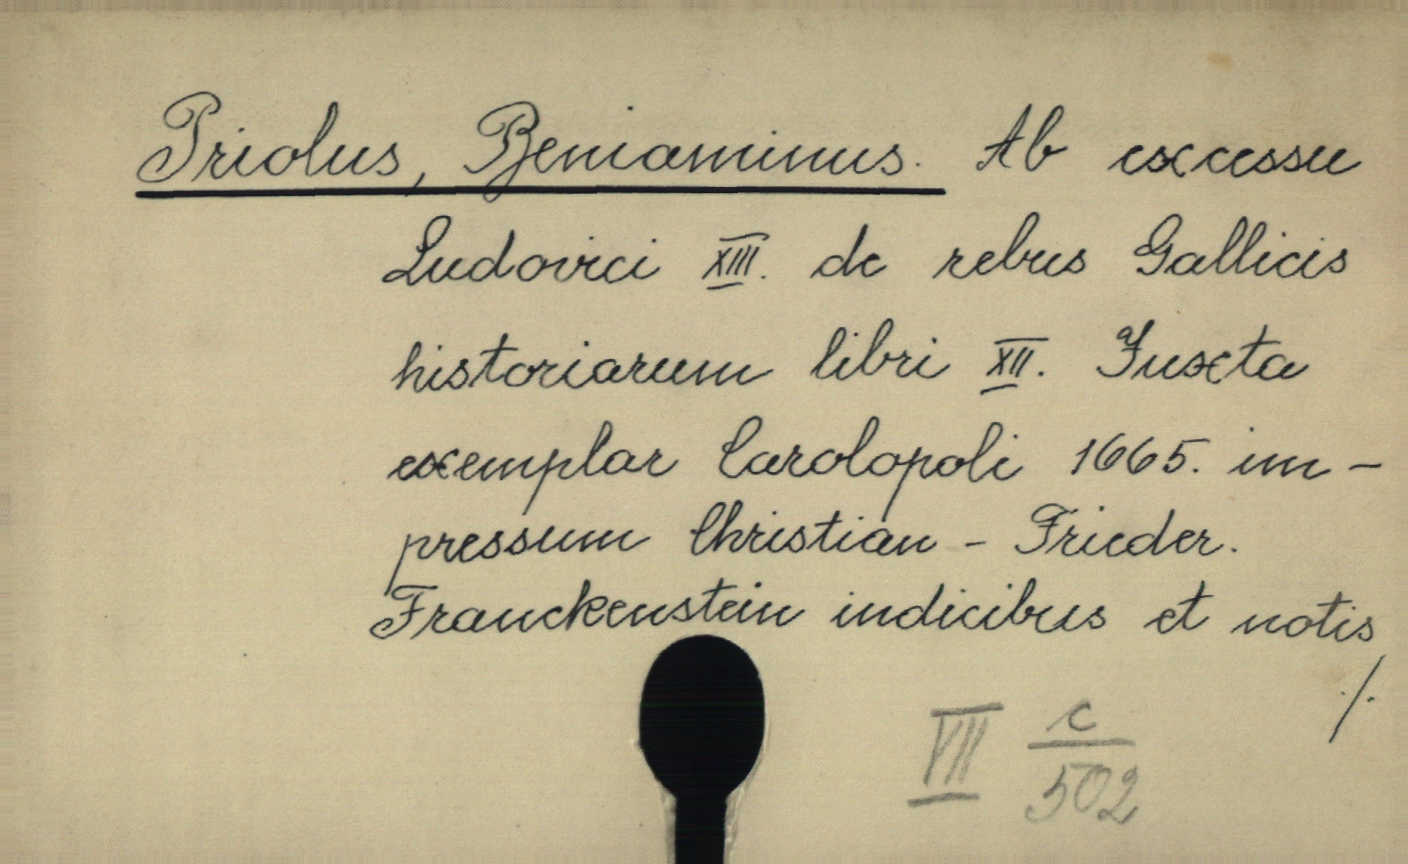 Priolus, Beniaminus. Ab excessu
Ludovici XIII. de rebus Gallicis
historiarum libri XII. Juxta
exemplar Carolopoli 1665. im-
pressum Christian-Frieder.
Franckenstein indicibus et notis
./.
VII c/502